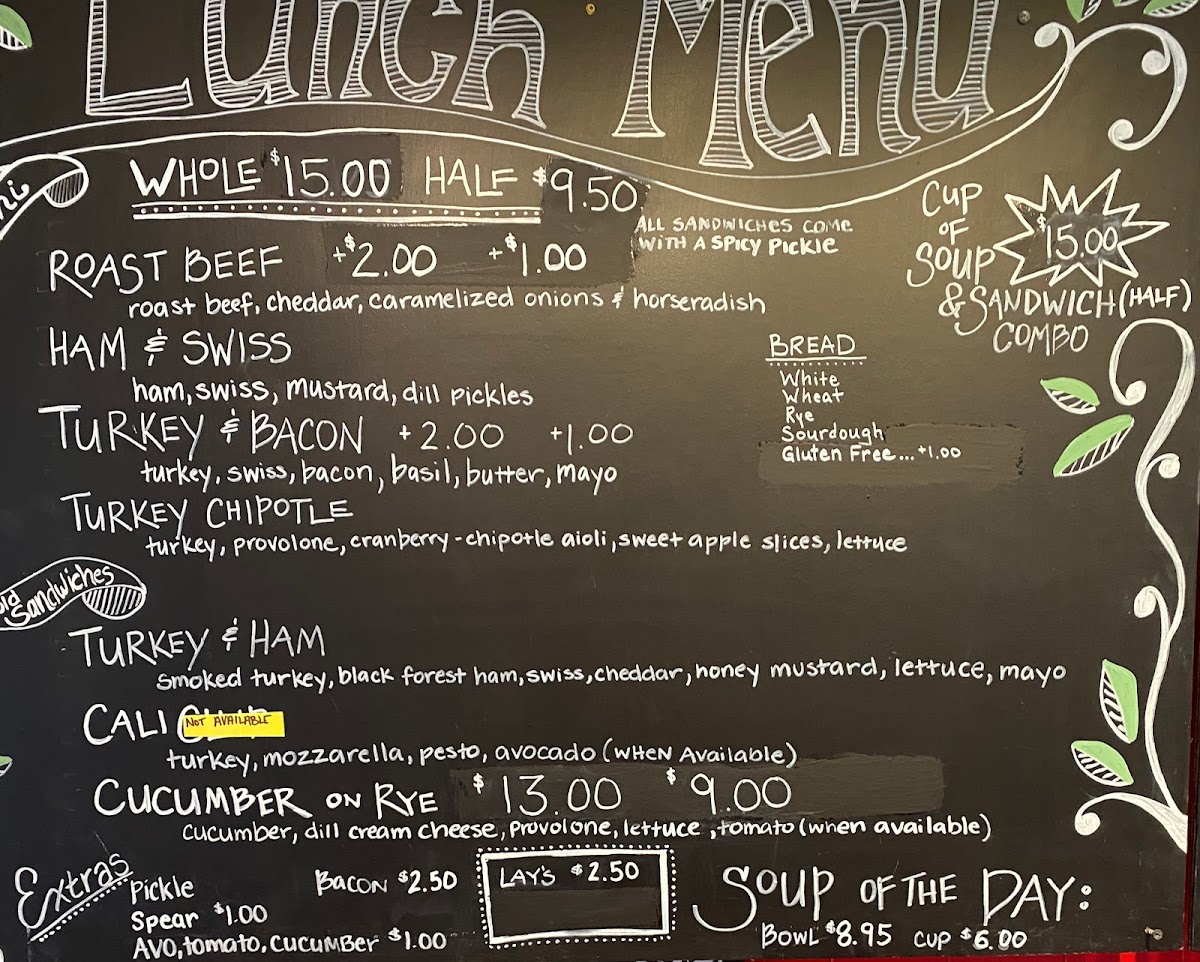 Lunch Menu
WHOLE $15.00 HALF $9.50
ALL SANDWICHES COME
WITH A SPICY PICKLE
ROAST BEEF +$2.00 +$1.00
roast beef, cheddar, caramelized onions & horseradish
CUP
OF
SOUP
$15.00
& SANDWICH (HALF)
COMBO
HAM & SWISS
ham, swiss, mustard, dill pickles
TURKEY & BACON +2.00 +1.00
turkey, swiss, bacon, basil, butter, mayo
TURKEY CHIPOTLE
turkey, provolone, cranberry-chipotle aioli, sweet apple slices, lettuce
BREAD
White
Wheat
Rye
Sourdough
Gluten Free...+1.00
Sandwiches
TURKEY & HAM
smoked turkey, black forest ham, swiss, cheddar, honey mustard, lettuce, mayo
CALI
NOT AVAILABLE
turkey, mozzarella, pesto, avocado (WHEN Available)
CUCUMBER ON RYE $13.00 $9.00
cucumber, dill cream cheese, Provolone, lettuce, tomato (when available)
Extras
Pickle
Spear $1.00
AVO, tomato, CUCUMBER $1.00
BACON $2.50
LAY'S $2.50
SOUP OF THE DAY:
BOWL $8.95 CUP $6.00